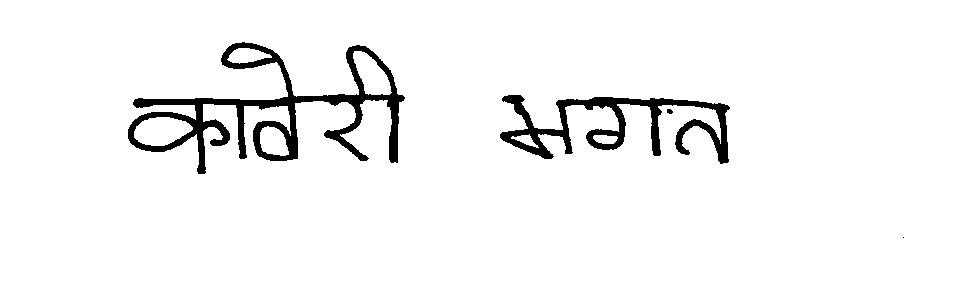 कावेरी भगत